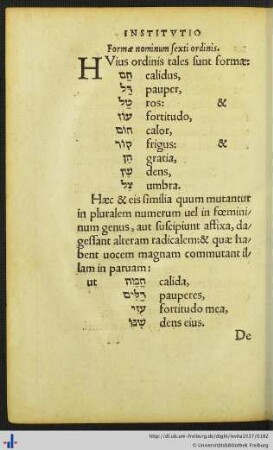 INSTITVTIO
Formæ nominum sexti ordinis.
HVius ordinis tales sunt formæ:
חַם calidus,
דַּל pauper,
טַל ros: &
עוֹז fortitudo,
חוֹם calor,
קוֹר frigus: &
חֵן gratia,
שֵׁן dens,
צֵל umbra.
Hæc & eis similia quum mutantur
in pluralem numerum uel in fœmini
num genus, aut suscipiunt affixa, da
gessant alteram radicalem: & quæ ha
bent uocem magnam commutant il
lam in paruam:
ut חַמָּה calida,
דַּלִּים pauperes,
עֻזִּי fortitudo mea,
שִׁנּוֹ dens eius.
De
© Universitätsbibliothek Freiburg